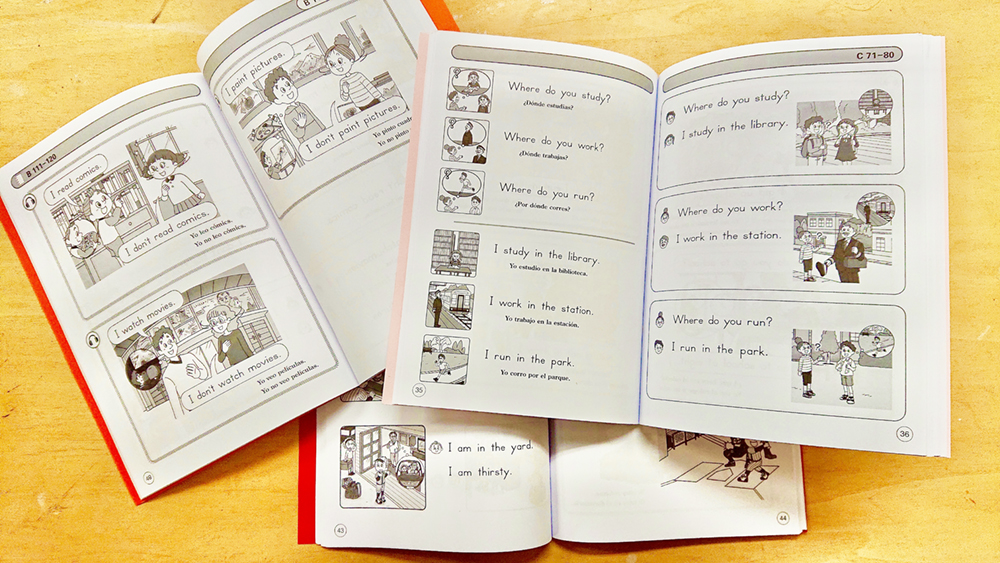 B 111-120
I read comics.
I don't read comics.
Yo leo cómics.
Yo no leo cómics.
I watch movies.
I don't watch movies.
Yo veo películas.
Yo no veo películas.
I paint pictures.
I don't paint pictures.
Yo pinto
Yo no pinto
Where do you study?
¿Dónde estudias?
Where do you work?
¿Dónde trabajas?
Where do you run?
¿Por dónde corres?
I study in the library.
Yo estudio en la biblioteca.
I work in the station.
Yo trabajo en la estación.
I run in the park.
Yo corro por el parque.
35
C 71-80
Where do you study?
I study in the library.
Where do you work?
I work in the station.
Where do you run?
I run in the park.
36
I am in the yard.
I am thirsty.
43
44